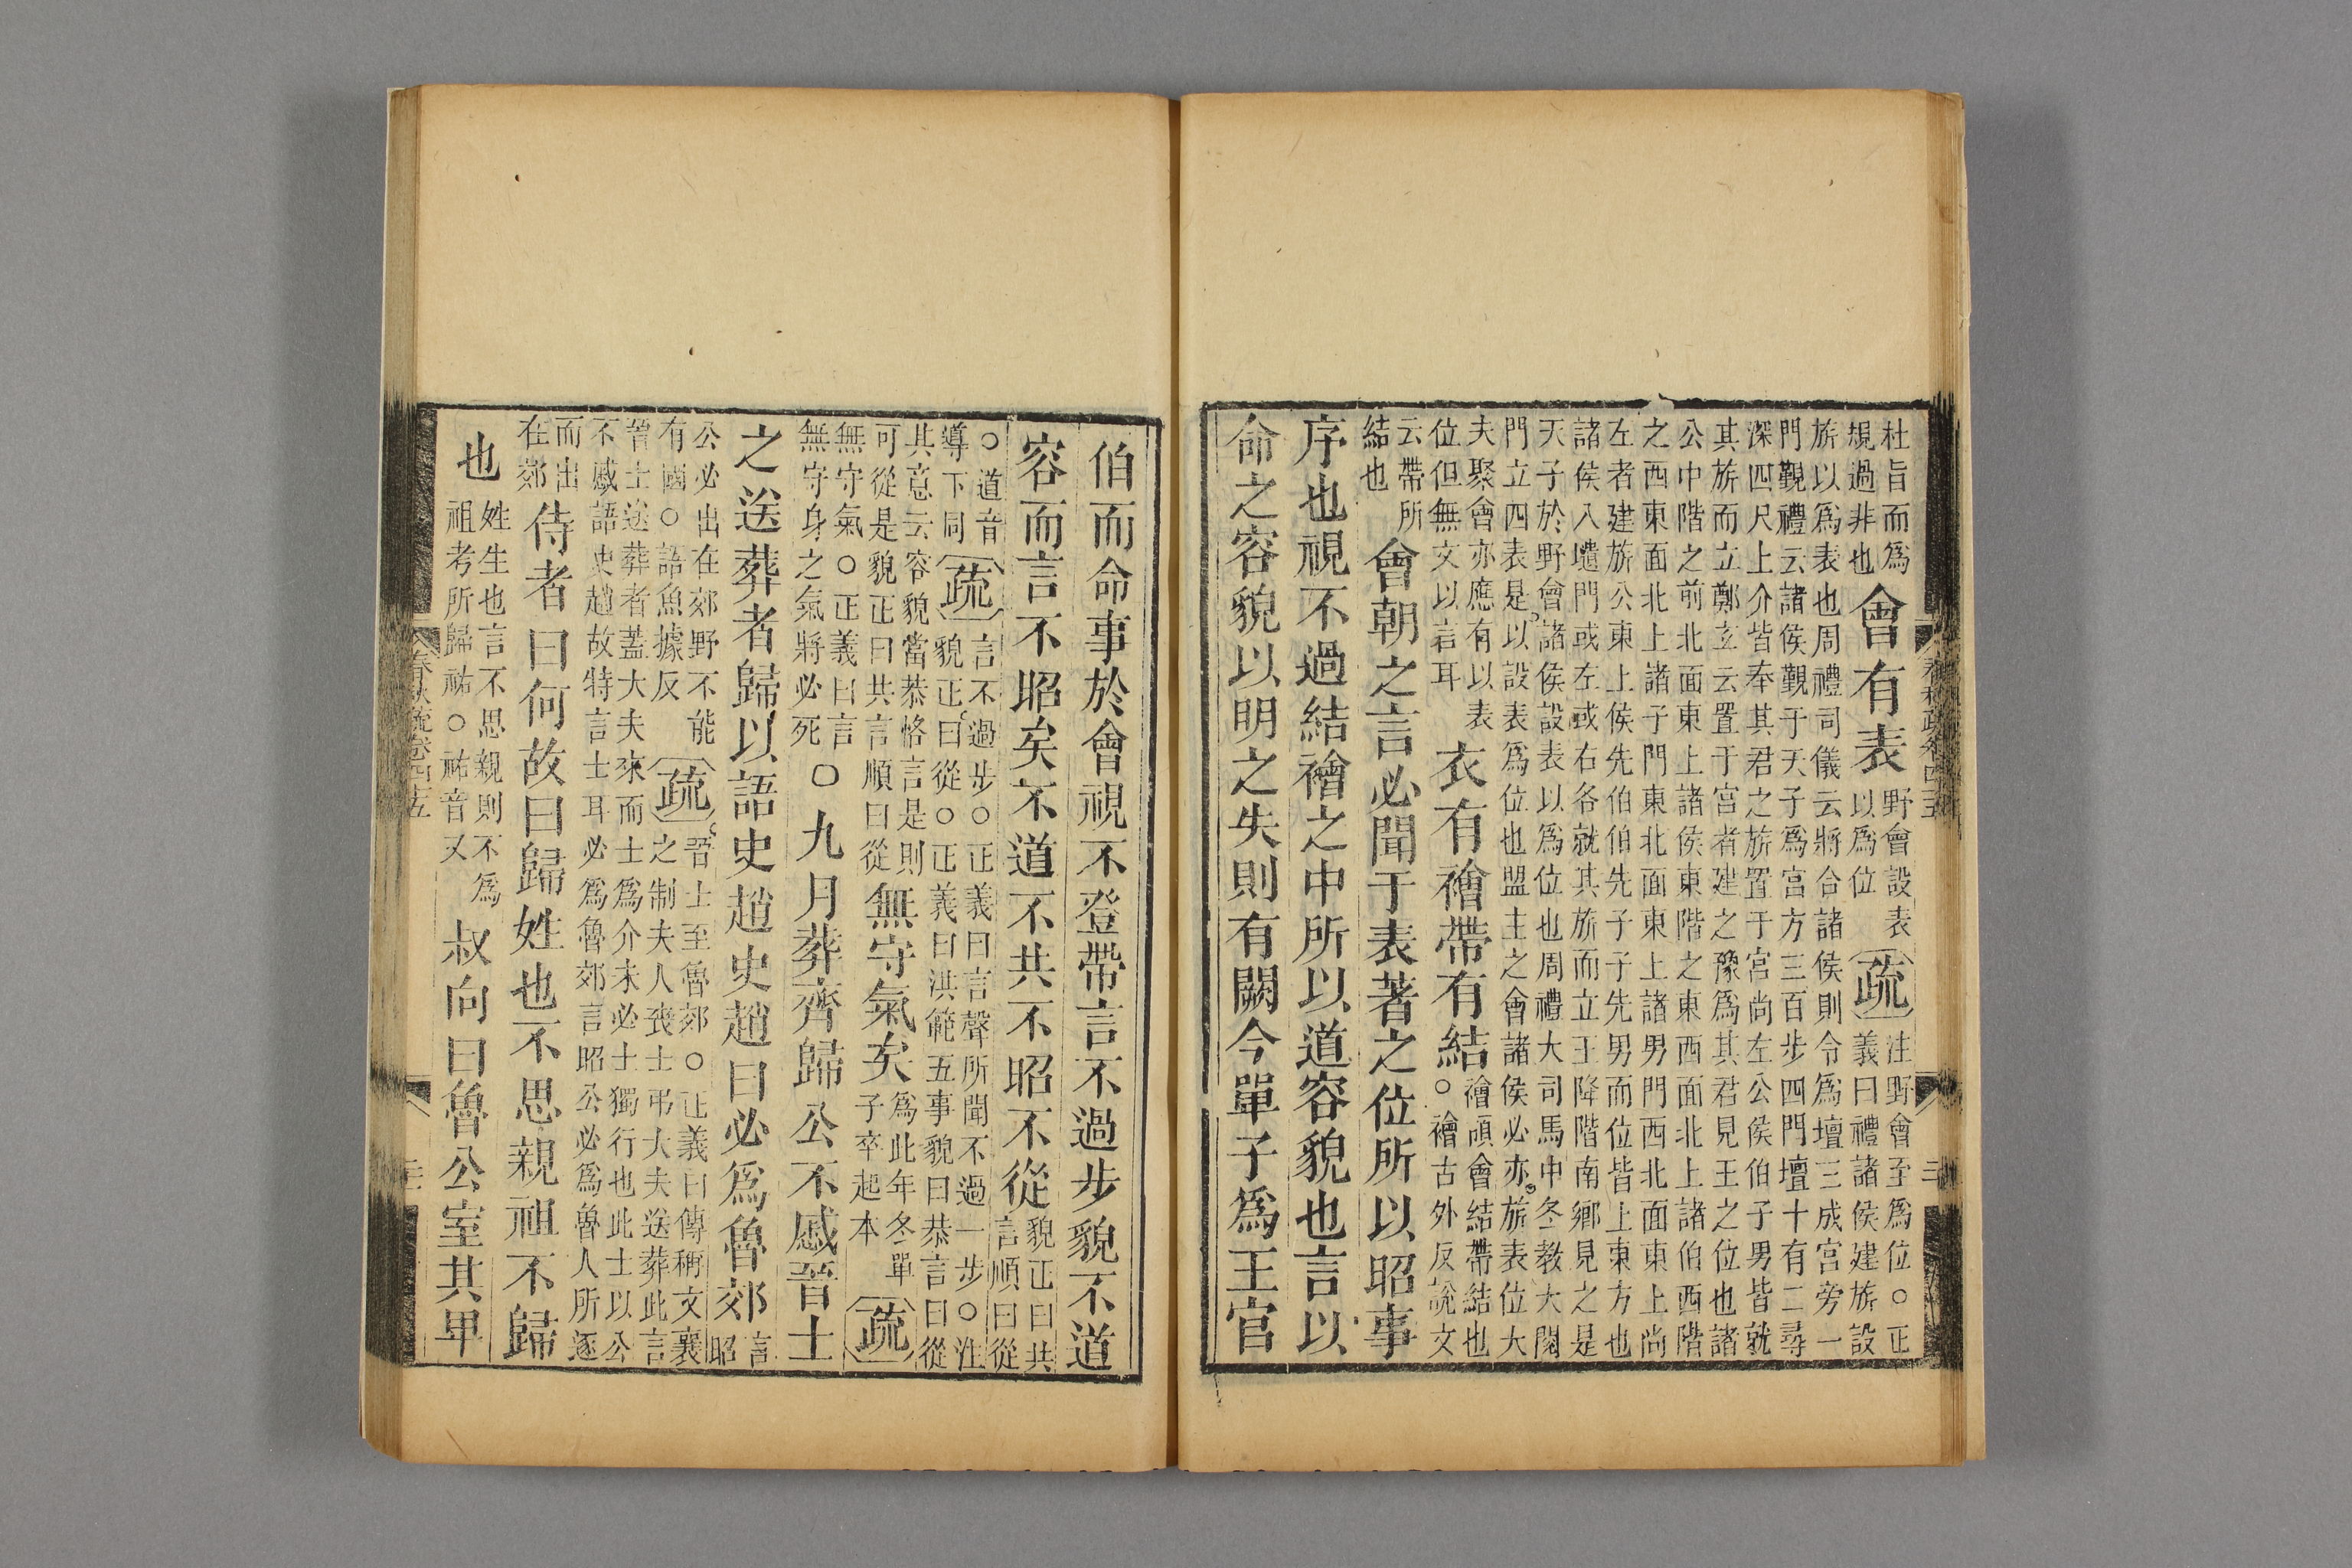 杜旨而爲
規過非也
會有表
野會設表
以爲位
疏
注野會至爲位○正
義曰禮諸侯建旂設
旂以爲表也周禮司儀云將合諸侯則令爲壇三成宮旁一
門覲禮云諸侯覲于天子爲宮方三百步四門壇十有二尋
深四尺上介皆奉其君之旂置于宮尚左公侯伯子男皆就
其旂而立鄭玄云置于宮者建之豫爲其君見王之位也諸
公中階之前北面東上諸侯東階之東西面北上諸伯西階
之西東面北上諸子門東北面東上諸男門西北面東上尚
左者建旂公東上侯先伯伯先子子先男而位皆上東方也
諸侯入壝門或左或右各就其旂而立王降階南鄉見之是
天子於野會諸侯設表以爲位也周禮大司馬中冬教大閱
門立四表是以設表爲位也盟主之會諸侯必亦旂表位大
夫聚會亦應有以表
位但無文以言耳
衣有襘帶有結
襘領會結帶結也
○襘古外反說文
云帶所
結也
會朝之言必聞于表著之位所以昭事
序也視不過結襘之中所以道容貌也言以
命之容貌以明之失則有闕今單子爲王官
伯而命事於會視不登帶言不過步貌不道
容而言不昭矣不道不共不昭不從
貌正曰共
言順曰從
○道音
導下同
疏
言不過步○正義曰言聲所聞不過一步○注
貌正曰從○正義曰洪範五事貌曰恭言曰從
其意云容貌當恭恪言是則
可從是貌正曰共言順曰從
無守氣矣
爲此年冬單
子卒起本
疏
無守氣○正義曰言
無守身之氣將必死
○九月葬齊歸公不慼晉士
之送葬者歸以語史趙史趙曰必爲魯郊
言
昭
公必出在郊野不能
有國○語魚據反
疏
晉士至魯郊○正義曰傳稱文襄
之制夫人喪士弔大夫送葬此言
晉士送葬者蓋大夫來而士爲介未必士獨行也此士以公
不慼語史趙故特言士耳必爲魯郊言昭公必爲魯人所逐
而出
在郊
侍者曰何故曰歸姓也不思親祖不歸
也
姓生也言不思親則不爲
祖考所歸祐○祐音又
叔向曰魯公室其卑
春秋疏卷四十五